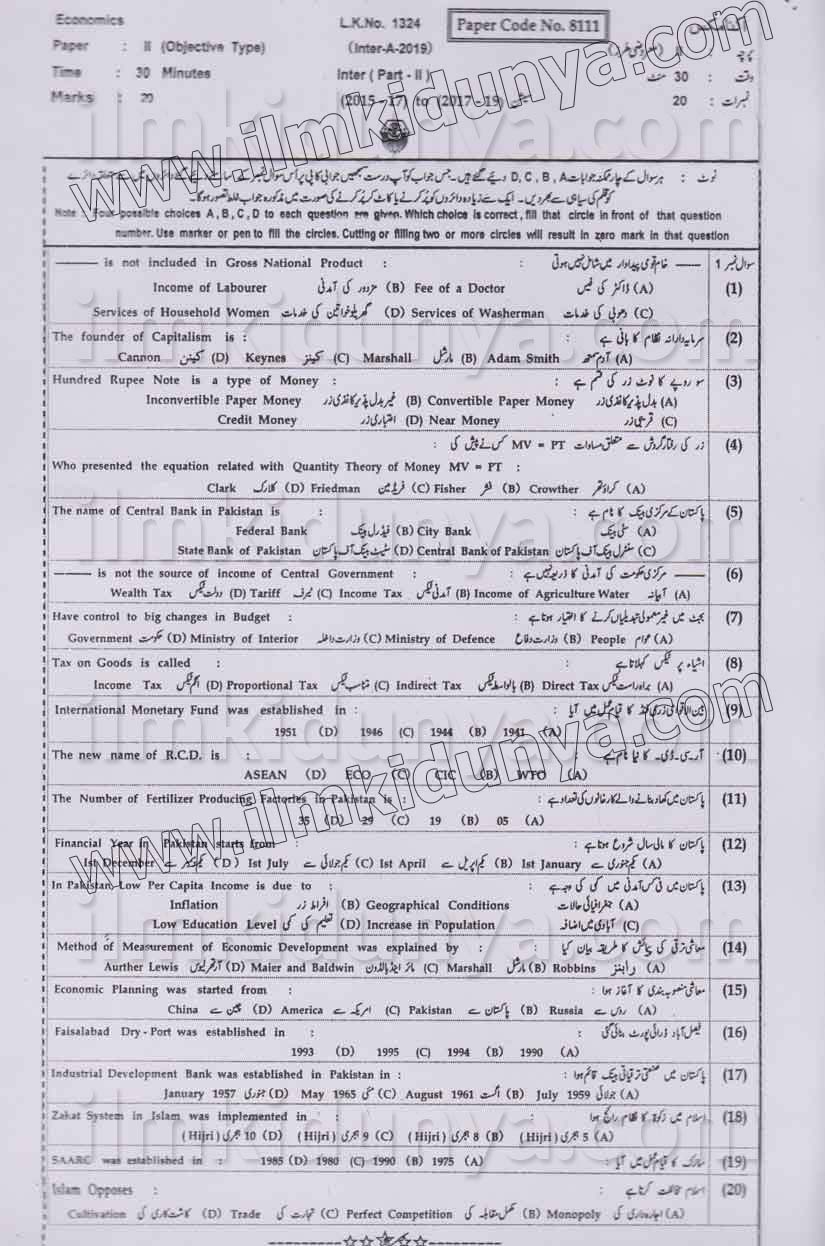 Economics L.K.No. 1324 Paper Code No. 8111 اکنامکس
Paper : II (Objective Type) (Inter-A-2019) پرچہ : II (معروضی طرز)
Time : 30 Minutes Inter ( Part - II ) وقت : 30 منٹ
Marks : 20 (2015 -17) to (2017 -19) سیشن نمبرات : 20
نوٹ : ہر سوال کے چار ممکنہ جوابات D, C, B, A دیئے گئے ہیں۔ جس جواب کو آپ درست سمجھیں جوابی کاپی پر اس سوال نمبر کے سامنے دیئے گئے دائروں میں سے متعلقہ دائرے
کو قلم کی سیاہی سے بھر دیں۔ ایک سے زیادہ دائروں کو پُر کرنے یا کاٹ کر پُر کرنے کی صورت میں مذکورہ جواب غلط تصور ہوگا۔
Note : Four possible choices A , B , C , D to each question are given. Which choice is correct , fill that circle in front of that question
number. Use marker or pen to fill the circles. Cutting or filling two or more circles will result in zero mark in that question
——— is not included in Gross National Product : : خام قومی پیداوار میں شامل نہیں ہوتی —— سوال نمبر 1
Income of Labourer مزدور کی آمدنی (B) Fee of a Doctor ڈاکٹر کی فیس (A) (1)
Services of Household Women گھریلو خواتین کی خدمات (D) Services of Washerman دھوبی کی خدمات (C)
The founder of Capitalism is : : سرمایہ دارانہ نظام کا بانی ہے (2)
Cannon کینن (D) Keynes کینز (C) Marshall مارشل (B) Adam Smith آدم سمتھ (A)
Hundred Rupee Note is a type of Money : : سو روپے کا نوٹ زر کی قسم ہے (3)
Inconvertible Paper Money غیر بدل پذیر کاغذی زر (B) Convertible Paper Money بدل پذیر کاغذی زر (A)
Credit Money اعتباری زر (D) Near Money قریبی زر (C)
زر کی رفتار گردش سے متعلق مساوات MV = PT کس نے پیش کی : (4)
Who presented the equation related with Quantity Theory of Money MV = PT :
Clark کلارک (D) Friedman فریڈ مین (C) Fisher فشر (B) Crowther کراؤتھر (A)
The name of Central Bank in Pakistan is : : پاکستان کے مرکزی بینک کا نام ہے (5)
Federal Bank فیڈرل بینک (B) City Bank سٹی بینک (A)
State Bank of Pakistan سٹیٹ بینک آف پاکستان (D) Central Bank of Pakistan سنٹرل بینک آف پاکستان (C)
——— is not the source of income of Central Government : : مرکزی حکومت کی آمدنی کا ذریعہ نہیں ہے —— (6)
Wealth Tax دولت ٹیکس (D) Tariff ٹیرف (C) Income Tax آمدنی ٹیکس (B) Income of Agriculture Water آبیانہ (A)
Have control to big changes in Budget : : بجٹ میں غیر معمولی تبدیلیاں کرنے کا اختیار ہوتا ہے (7)
Government حکومت (D) Ministry of Interior وزارت داخلہ (C) Ministry of Defence وزارت دفاع (B) People عوام (A)
Tax on Goods is called : : اشیاء پر ٹیکس کہلاتا ہے (8)
Income Tax انکم ٹیکس (D) Proportional Tax متناسب ٹیکس (C) Indirect Tax بالواسطہ ٹیکس (B) Direct Tax براہ راست ٹیکس (A)
International Monetary Fund was established in : : بین الاقوامی زری فنڈ کا قیام عمل میں آیا (9)
1951 (D) 1946 (C) 1944 (B) 1941 (A)
The new name of R.C.D. is : : آر۔سی۔ڈی۔ کا نیا نام ہے (10)
ASEAN (D) ECO (C) CIC (B) WTO (A)
The Number of Fertilizer Producing Factories in Pakistan is : : پاکستان میں کھاد بنانے والے کارخانوں کی تعداد ہے (11)
35 (D) 29 (C) 19 (B) 05 (A)
Financial Year in Pakistan starts from : : پاکستان کا مالی سال شروع ہوتا ہے (12)
1st December یکم دسمبر سے (D) 1st July یکم جولائی سے (C) 1st April یکم اپریل سے (B) 1st January یکم جنوری سے (A)
In Pakistan, Low Per Capita Income is due to : : پاکستان میں فی کس آمدنی میں کمی کی وجہ ہے (13)
Inflation افراط زر (B) Geographical Conditions جغرافیائی حالات (A)
Low Education Level تعلیم کی کمی (D) Increase in Population آبادی میں اضافہ (C)
Method of Measurement of Economic Development was explained by : : معاشی ترقی کی پیمائش کا طریقہ بیان کیا (14)
Aurther Lewis آرتھر لیوس (D) Maier and Baldwin مائر اینڈ بالڈون (C) Marshall مارشل (B) Robbins رابنز (A)
Economic Planning was started from : : معاشی منصوبہ بندی کا آغاز ہوا (15)
China چین سے (D) America امریکہ سے (C) Pakistan پاکستان سے (B) Russia روس سے (A)
Faisalabad Dry-Port was established in : : فیصل آباد ڈرائی پورٹ بنائی گئی (16)
1993 (D) 1995 (C) 1994 (B) 1990 (A)
Industrial Development Bank was established in Pakistan in : : پاکستان میں صنعتی ترقیاتی بینک قائم ہوا (17)
January 1957 جنوری (D) May 1965 مئی (C) August 1961 اگست (B) July 1959 جولائی (A)
Zakat System in Islam was implemented in : : اسلام میں زکوٰۃ کا نظام رائج ہوا (18)
(Hijri) 10 ہجری (D) (Hijri) 9 ہجری (C) (Hijri) 8 ہجری (B) (Hijri) 5 ہجری (A)
SAARC was established in : 1985 (D) 1980 (C) 1990 (B) 1975 (A) : سارک کا قیام عمل میں آیا (19)
Islam Opposes : : اسلام مخالفت کرتا ہے (20)
Cultivation کاشت کاری کی (D) Trade تجارت کی (C) Perfect Competition مکمل مقابلہ کی (B) Monopoly اجارہ داری کی (A)
www.ilmkidunya.com
www.ilmkidunya.com
ilmkidunya.com
ilmkidunya.com
ilmkidunya.com
ilmkidunya.com
ilmkidunya.com
ilmkidunya.com